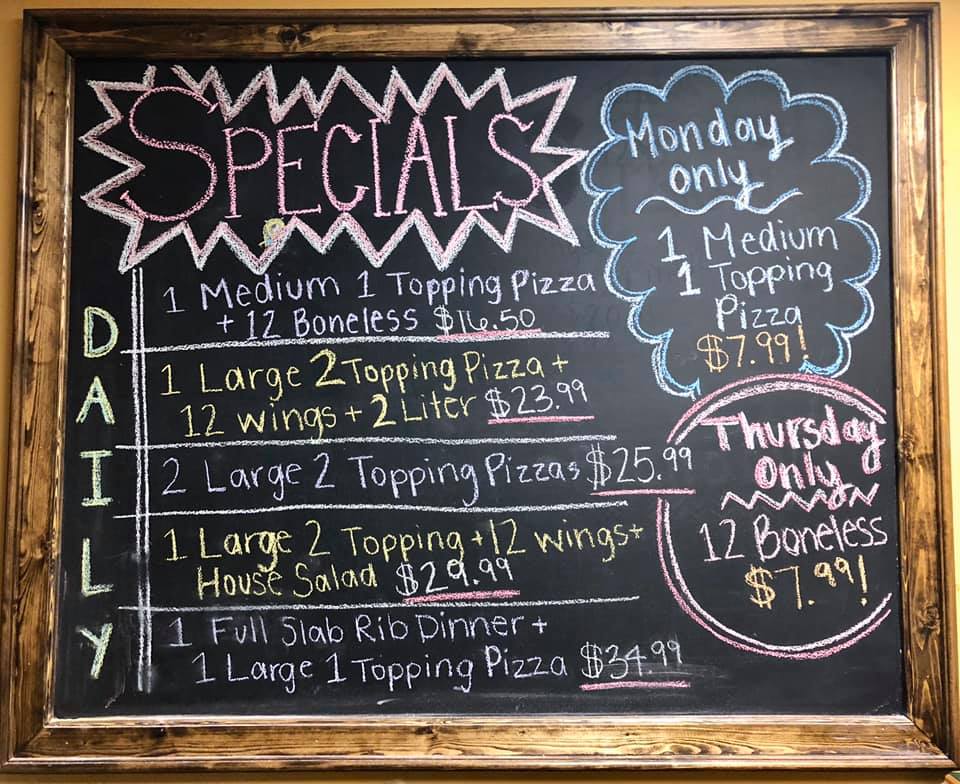 SPECIALS
DAILY
1 Medium 1 Topping Pizza
+ 12 Boneless $16.50
1 Large 2 Topping Pizza +
12 wings + 2 Liter $23.99
2 Large 2 Topping Pizzas $25.99
1 Large 2 Topping + 12 wings +
House Salad $29.99
1 Full Slab Rib Dinner +
1 Large 1 Topping Pizza $34.99
Monday
only
1 Medium
1 Topping
Pizza
$7.99!
Thursday
Only
12 Boneless
$7.99!